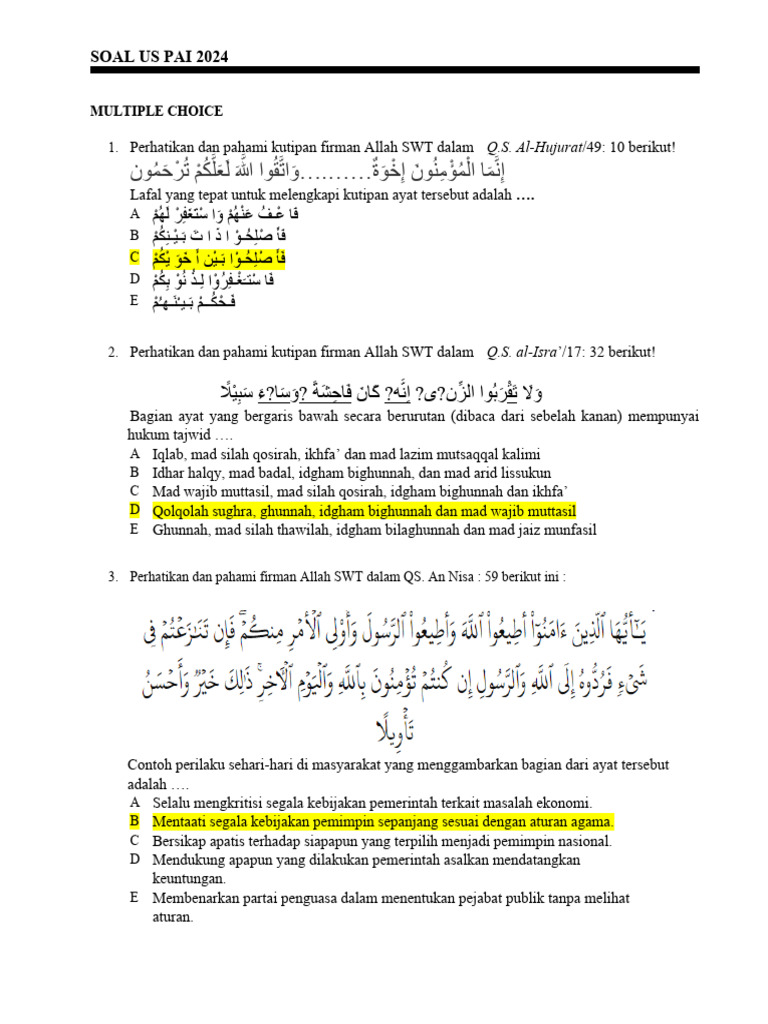 SOAL US PAI 2024
MULTIPLE CHOICE
1. Perhatikan dan pahami kutipan firman Allah SWT dalam Q.S. Al-Hujurat/49: 10 berikut!
إِنَّمَا الْمُؤْمِنُونَ إِخْوَةٌ..........وَاتَّقُوا اللَّهَ لَعَلَّكُمْ تُرْحَمُونَ
Lafal yang tepat untuk melengkapi kutipan ayat tersebut adalah ….
A فَا عْـفُ عَنْهُمْ وَا سْتَغْفِرْ لَهُمْ
B فَأَ صْلِحُـوْ ا ذَ ا تَ بَـيْـنِكُمْ
C فَأَ صْلِحُـوْا بَـيْنَ أَ خَوَ يْكُمْ
D فَا سْتَـغْـفِرُوْا لِـذُ نُوْ بِكُمْ
E فَـحْكُــمْ بَـيْـنَـهُمْ
2. Perhatikan dan pahami kutipan firman Allah SWT dalam Q.S. al-Isra’/17: 32 berikut!
وَلا تَقْرَبُوا الزِّن?ى? إِنَّه? كَانَ فَاحِشَةً ?وَسَا?ءَ سَبِيْلًا
Bagian ayat yang bergaris bawah secara berurutan (dibaca dari sebelah kanan) mempunyai
hukum tajwid ….
A Iqlab, mad silah qosirah, ikhfa’ dan mad lazim mutsaqqal kalimi
B Idhar halqy, mad badal, idgham bighunnah, dan mad arid lissukun
C Mad wajib muttasil, mad silah qosirah, idgham bighunnah dan ikhfa’
D Qolqolah sughra, ghunnah, idgham bighunnah dan mad wajib muttasil
E Ghunnah, mad silah thawilah, idgham bilaghunnah dan mad jaiz munfasil
3. Perhatikan dan pahami firman Allah SWT dalam QS. An Nisa : 59 berikut ini :
يَـٰٓأَيُّهَا ٱلَّذِينَ ءَامَنُوٓا۟ أَطِيعُوا۟ ٱللَّهَ وَأَطِيعُوا۟ ٱلرَّسُولَ وَأُو۟لِى ٱلْأَمْرِ مِنكُمْ ۖ فَإِن تَنَـٰزَعْتُمْ فِى
شَىْءٍ فَرُدُّوهُ إِلَى ٱللَّهِ وَٱلرَّسُولِ إِن كُنتُمْ تُؤْمِنُونَ بِٱللَّهِ وَٱلْيَوْمِ ٱلْـَٔاخِرِ ۚ ذَٰلِكَ خَيْرٌ وَأَحْسَنُ
تَأْوِيلًا
Contoh perilaku sehari-hari di masyarakat yang menggambarkan bagian dari ayat tersebut
adalah ….
A Selalu mengkritisi segala kebijakan pemerintah terkait masalah ekonomi.
B Mentaati segala kebijakan pemimpin sepanjang sesuai dengan aturan agama.
C Bersikap apatis terhadap siapapun yang terpilih menjadi pemimpin nasional.
D Mendukung apapun yang dilakukan pemerintah asalkan mendatangkan
keuntungan.
E Membenarkan partai penguasa dalam menentukan pejabat publik tanpa melihat
aturan.